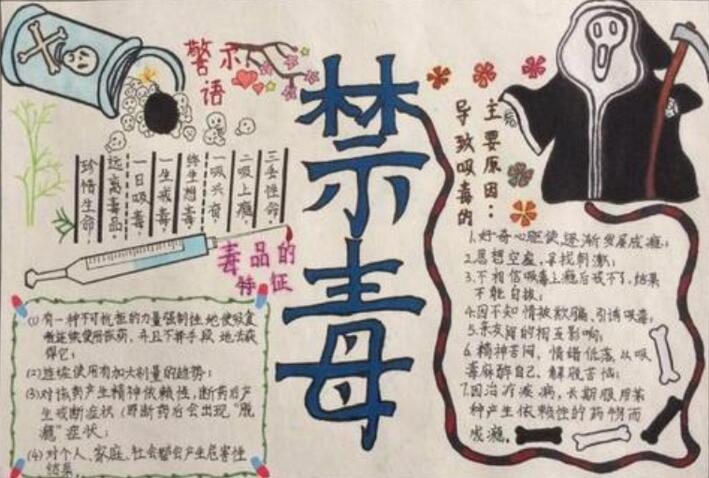 警示
语
珍惜生命。
远离毒品,
一日吸毒,
一生戒毒,
终生想毒,
一吸兴奋,
二吸上瘾,
三丢性命,
禁毒
毒品的
特征
(1)有一种不可抗拒的力量强制性地使吸食
者连续使用该药,并且不择手段地去获
得它;
(2)连续使用有加大剂量的趋势;
(3)对该药产生精神依赖性,断药后产
生戒断症状(即断药后会出现"脱
瘾"症状;
(4)对个人、家庭、社会都会产生危害性
结果。
导致吸毒的
主要原因:
1.好奇心驱使,逐渐发展成瘾;
2.思想空虚,寻找刺激;
3.不相信吸毒上瘾后戒不了,结果
不能自拔;
4.因不知情被欺骗,引诱吸毒;
5.亲友间的相互影响;
6.精神苦闷,情绪低落,以吸
毒麻醉自己、解脱苦恼;
7.因治疗疾病,长期服用某
种产生依赖性的药物而
成瘾。